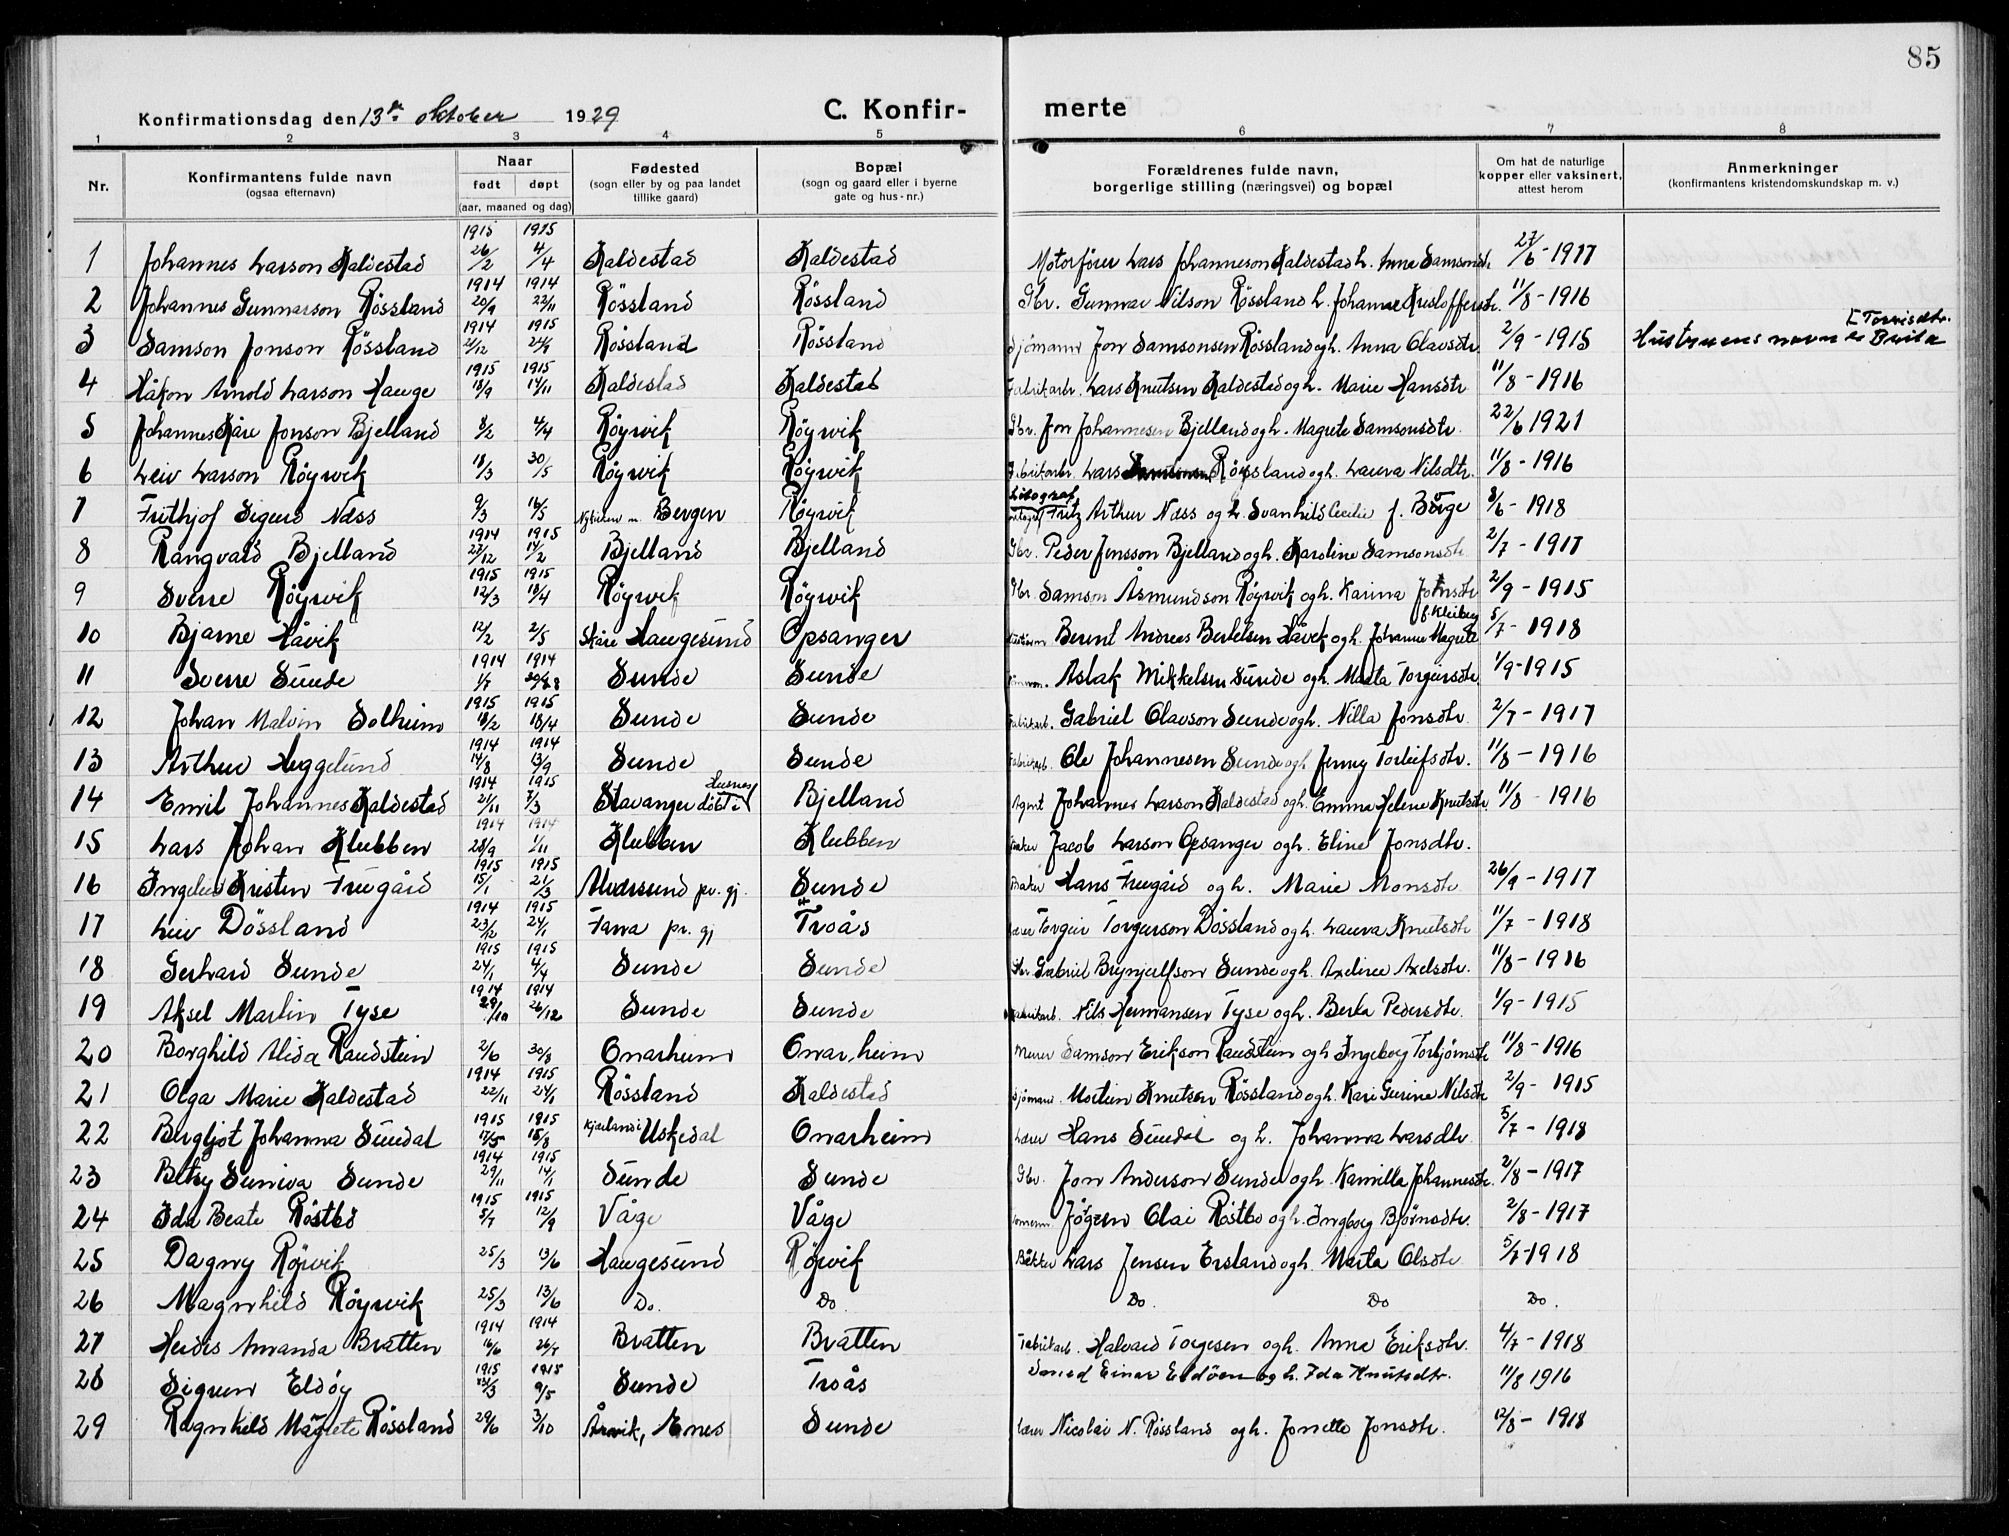 85
Konfirmationsdag den 13de oktober 1929 C. Konfir- merte
1 2 3 4 5 6 7 8
Nr. Konfirmantens fulde navn (ogsaa efternavn) Naar født døpt (aar, maaned og dag) Fødested (sogn eller by og paa landet tillike gaard) Bopæl (sogn og gaard eller i byerne gate og hus-nr.) Forældrenes fulde navn, borgerlige stilling (næringsvei) og bopæl Om hat de naturlige kopper eller vaksinert, attest herom Anmerkninger (konfirmantens kristendomskundskap m. v.)
1915 1915
1 Johannes Larson Kaldestad 26/2 4/4 Kaldestad Kaldestad Motorfører Lars Johanneson Kaldestad h. Anna Samsondtr 27/6-1917
1914 1914
2 Johannes Gunnarson Røssland 20/9 22/11 Røssland Røssland Gbr. Gunnar Nilson Røssland h. Johanne Kristoffersdtr. 11/8-1916
1914 1915 [Torrisdtr.
3 Samson Jonson Røssland 21/12 24/1 Røssland Røssland Sjømann Jon Samsonsen Røssland og h. Anna Olavsdtr. 2/9-1915 Hustruens navn er Brita
1915 1915
4 Håkon Arnold Larson Hauge 18/9 14/11 Kaldestad Kaldestad Fabrikarb. Lars Knutsen Kaldestad og h. Marie Hansdtr 11/8-1916
5 Johannes Kåre Jonson Bjelland 8/2 4/4 Røyrvik Røyrvik Gbr. Jon Johannesen Bjelland og h. Magrete Samsonsdtr. 22/6 1921
6 Leiv Larson Røyrvik 18/3 30/5 Røyrvik Røyrvik Fabrikarb. Lars Røssland og h. Laura Nilsdtr. 11/8-1916
7 Frithjof Sigurd Næss 9/3 16/5 Bergen Røyrvik Litograf Fritz Arthur Næss og h. Svanhild Cecilie f. Børge 8/6-1918
1914 1915
8 Rangvald Bjelland 27/12 14/2 Bjelland Bjelland Gbr. Peder Jensson Bjelland og h. Karoline Samsonsdtr. 2/7-1917
1915 1915
9 Sverre Røyrvik 12/3 18/4 Røyrvik Røyrvik Gbr. Samson Åsmundson Røyrvik og h. Karina Johnsdtr 2/9-1915
10 Bjarne Håvik 12/2 2/5 Skåre Haugesund Opsanger Berent Andreas Bertelsen Håvik og h. Johanne Magrete f. Kleiberg 5/7-1918
1914 1914
11 Sverre Sunde 1/7 Sunde Sunde Aslak Mikkelsen Sunde og h. Marta Torgeirsdtr. 1/9-1915
1915 1915
12 Johan Malvin Solheim 18/2 18/4 Sunde Sunde Fabrikarb. Gabriel Olavson Sunde og h. Nilla Jonsdtr. 2/7-1917
1914 1914
13 Arthur Heggelund 14/8 13/9 Sunde Sunde Fabrikarb. Ole Johannesen Sunde og h. Jenny Torleifsdtr. 11/8-1916
1914 1915
14 Emil Johannes Kaldestad 21/11 7/3 Stavanger døbt i Husnes Bjelland Agent Johannes Larson Kaldestad og h. Emma Helene Knutsdtr. 11/8-1916
1914 1914
15 Lars Johan Klubben 28/9 1/11 Klubben Klubben Jacob Larson Opsanger og h. Eline Jonsdtr.
1915 1915
16 Kristen Fuegård 15/1 21/3 pr. gj. Sunde Baker Hans Fuegård og h. Marie Monsdtr 26/9-1917
1914 1915
17 Leiv Døssland 23/12 24/1 Fana pr. gj Troås Lærer Torgeir Torgerson Døssland og h. Laura Knutsdtr 11/7-1918
1915 1915
18 Gerhard Sunde 24/1 4/4 Sunde Sunde Gbr. Gabriel Brynjulfson Sunde og h. Axeline Axelsdtr. 11/8-1916
1914 1914
19 Aksel Martin Tyse 29/10 26/12 Sunde Sunde Fabrikarb. Nils Hermansen Tyse og h. Berta Pedersdtr. 1/9-1915
20 Borghild Alida Raudstein 2/6 30/8 Onarheim Onarheim Murer Samson Erikson Raudstein og h Ingeborg Torbjørnsdtr 11/8-1916
1914 1915
21 Olga Marie Kaldestad 22/11 24/1 Røssland Kaldestad Sjømand Mortein Knutsen Røssland og h. Kari Gurine Nilsdtr 2/9-1915
1915 1915
22 Bergljot Johanna Sundal 17/5 15/8 Uskedal Onarheim Lærer Hans Sundal og h. Johanna Larsdtr. 5/7-1918
1914 1915
23 Betsy Suniva Sunde 29/11 14/1 Sunde Sunde Gbr. Jon Anderson Sunde og h. Kamilla Johannesdtr. 2/8-1917
1915 1915
24 Ida Beate Røstbø 5/7 12/9 Våge Våge Jørgen Olai Røstbø og h. Ingborg Bjørnsdtr. 2/8-1917
25 Dagny Røyrvik 25/3 13/6 Haugesund Røyrvik Bakker Lars Jensen Ersland og h. Marta Olsdtr 5/7-1918
26 Magnhild Røyrvik 25/3 13/6 Do. Do. Do. Do Do.
1914 1914
27 Heidis Amanda Bratten 16/6 26/7 Bratten Bratten Fabrikarb. Halvard Torgesen og h. Anna Eriksdtr. 4/7-1918
1915 1915
28 Sigrun Eldøy 23/3 9/5 Sunde Troås Smed Einar Eldøen og h. Ida Knutsdtr. 11/8 1916
29 Ragnhild Magrete Røssland 29/6 3/10 Årvik, Enes Sunde Lærer Nicolai N. Røssland og h. Jonette Jonsdtr. 12/8-1918